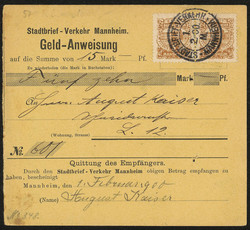 Stadtbrief-Verkehr Mannheim.
Geld-Anweisung
auf die Summe von 15 Mark Pf.
Fünfzehn Mark Pf.
Herrn August Kaiser
L. 12.
(Wohnung, Strasse)
No. 600
Quittung des Empfängers.
Durch den Stadtbrief-Verkehr Mannheim obigen Betrag empfangen zu
haben, bescheinigt
Mannheim, den 1. Februar 900
(Name) August Kaiser